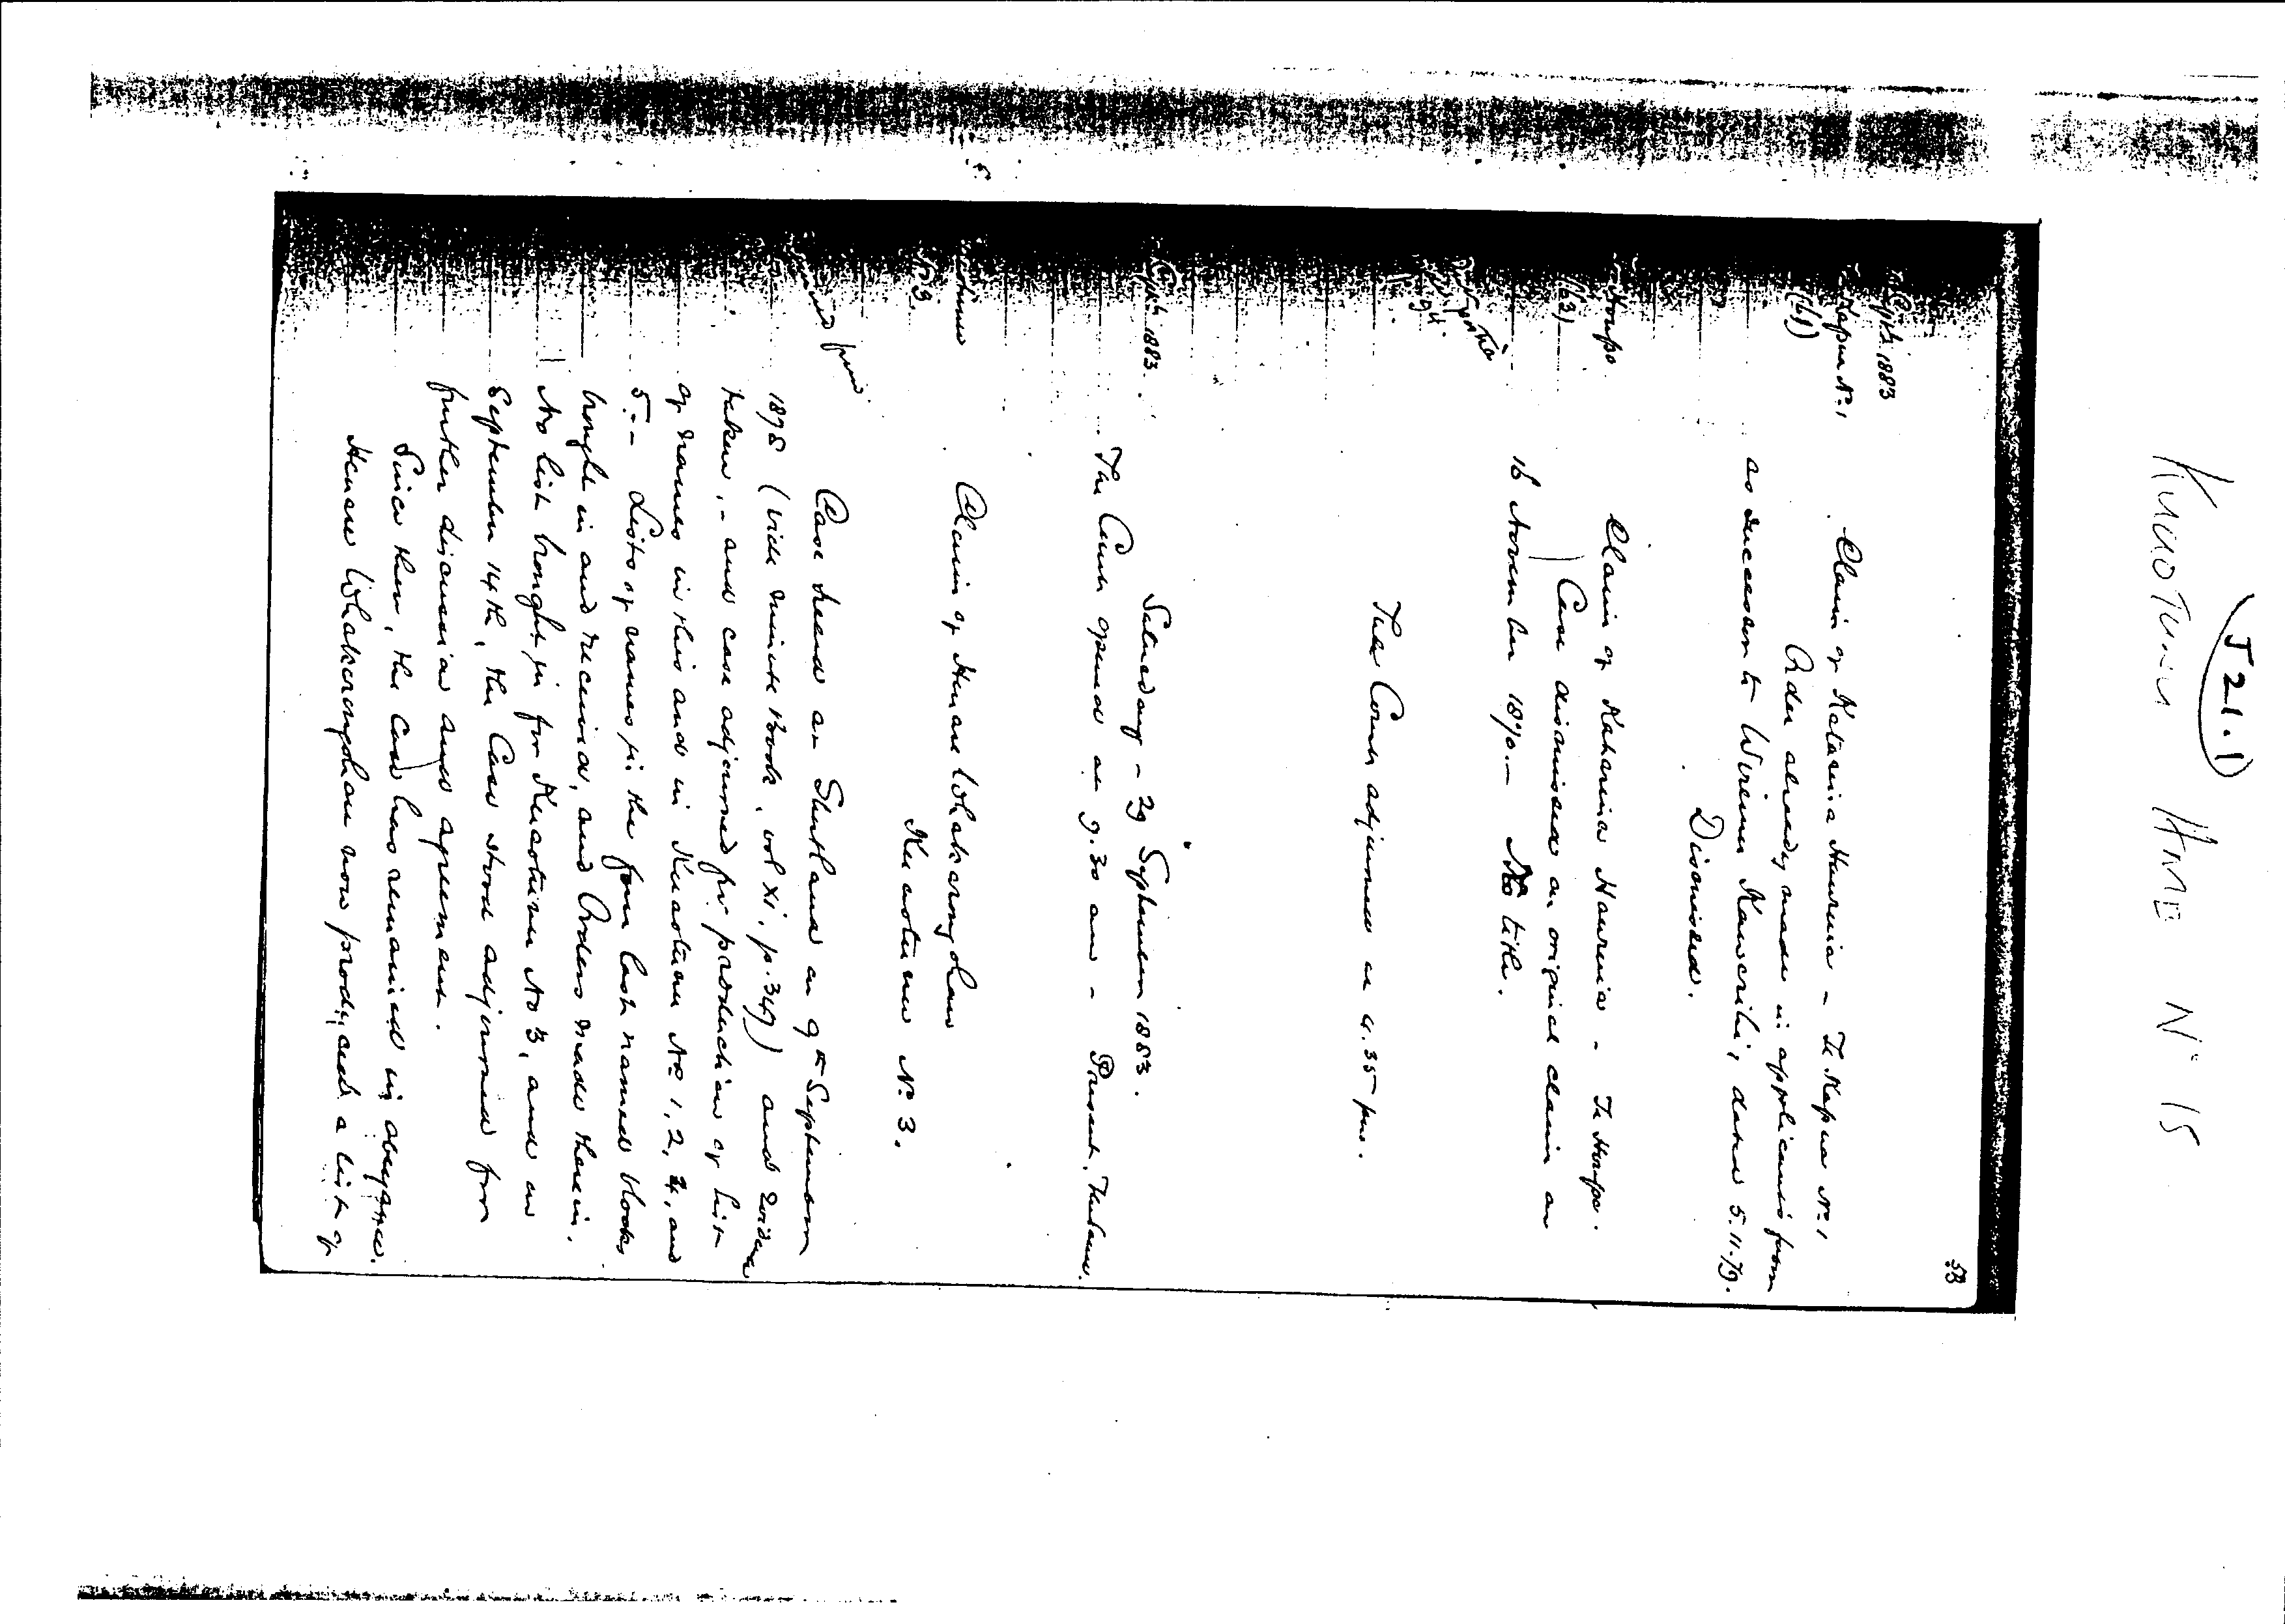 J 21.1
Kuaotunu HME Nº 15
53
Sept. 1883
Kapua Nº 1
(61)
Claim of Katarina Hauruia - Te Kapua Nº 1
Order already made in applicants favor
as successor to Wiremu, dated 5.11.79.
Dismissed.
Houpo
(63)
Claim of Katarina Hauruia - Te Houpo.
Case dismissed an original claim on
16 November 1870.- No title.
The Court adjourned at 4.35 pm.
Sept. 1883.
Saturday - 29 September 1883.
The Court opened at 9.30 am - Present.
Nº 3
Claim of Henare Whakarongohau
Kuaotunu Nº 3.
from
Case heard at Shortland on 9th September
1878 (vide Minute Book, vol XI. p. 347) and Evidence
taken, - and case adjourned for production of list
of names in this and in Kuaotunu Nº 1, 2, 4, and
5. - Lists of names in the four last named blocks
brought in and received, and Orders made therein.
No list brought in for Kuaotunu No 3, and on
September 14th, the Case stood adjourned for
further discussion and agreement.
Since then, the case has remained in abeyance.
Henare Whakarongohau now produced a list of